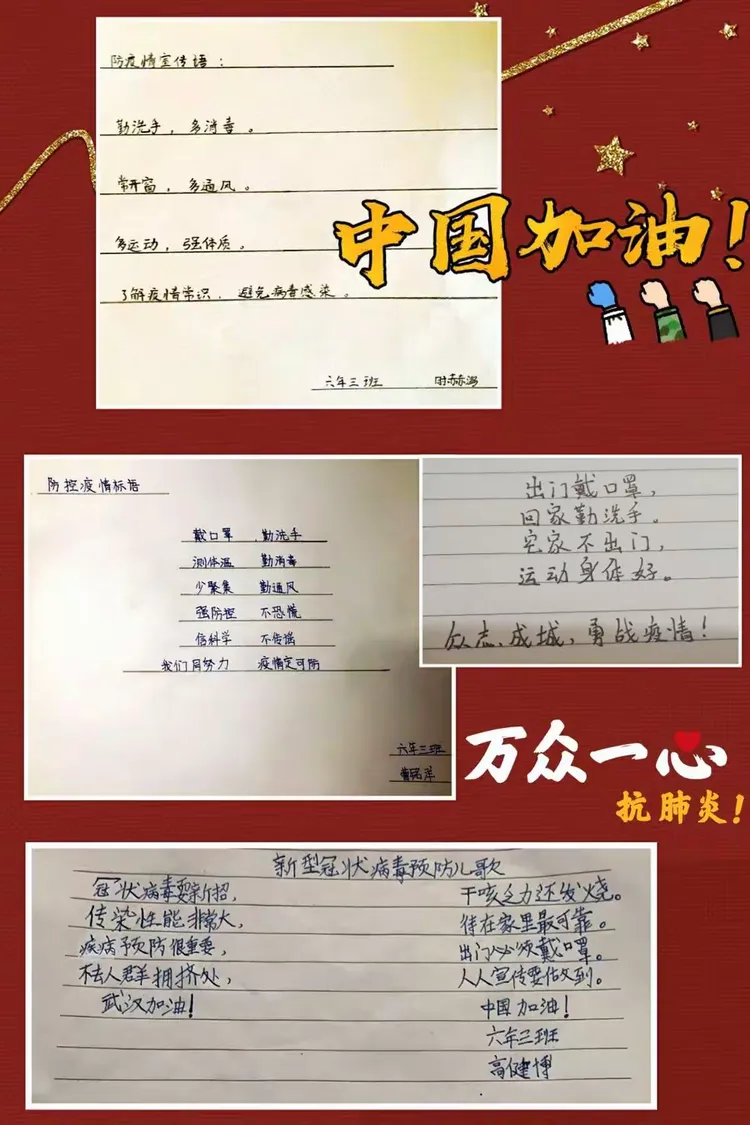 防疫情宣传语：
勤洗手，多消毒。
常开窗，多通风。
多运动，强体质。
了解疫情常识，避免病毒感染。
六年三班
中国加油！
防控疫情标语
戴口罩 勤洗手
测体温 勤消毒
少聚集 勤通风
强防控 不恐慌
信科学 不传谣
我们同努力 疫情定可防
六年三班
出门戴口罩，
回家勤洗手。
宅家不出门，
运动身体好。
众志成城，勇战疫情！
万众一心
抗肺炎！
新型冠状病毒预防儿歌
冠状病毒耍新招， 干咳乏力还发烧。
传染性能非常大， 待在家里最可靠。
疾病预防很重要， 出门必须戴口罩。
不去人群拥挤处， 人人宣传要做到。
武汉加油！ 中国加油！
六年三班
高健博